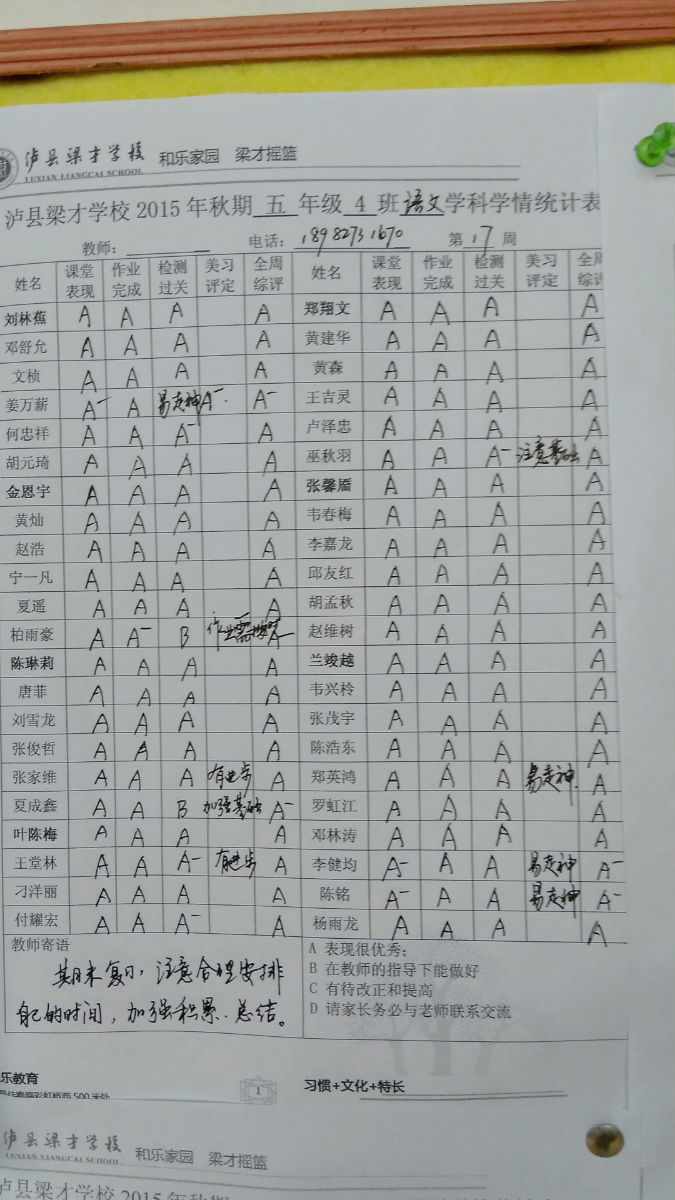 泸县梁才学校 和乐家园 梁才摇篮
LUXIAN LIANGCAI SCHOOL
泸县梁才学校 2015 年秋期 五 年级 4 班 语文 学科学情统计表
教师: 电话: 18982731670 第 17 周
姓名 课堂表现 作业完成 检测过关 美习评定 全周综评 姓名 课堂表现 作业完成 检测过关 美习评定 全周综评
刘林蕉 A A A A 郑翔文 A A A A
邓舒允 A A A A 黄建华 A A A A
文桢 A A A A 黄森 A A A A
姜万薪 A- A 易走神 A- A- 王吉灵 A A A A
何忠祥 A A A- A 卢泽忠 A A A A
胡元琦 A A A A 巫秋羽 A A A- 注意基础 A
金恩宇 A A A A 张馨靥 A A A A
黄灿 A A A A 韦春梅 A A A A
赵浩 A A A A 李嘉龙 A A A A
宁一凡 A A A A 邱友红 A A A A
夏遥 A A A A 胡孟秋 A A A A
柏雨豪 A A- B 作业需 A 赵维树 A A A A
陈琳莉 A A A A 兰竣越 A A A A
唐菲 A A A A 韦兴柃 A A A A
刘雪龙 A A A A 张茂宇 A A A A
张俊哲 A A A A 陈浩东 A A A A
张家维 A A A 有进步 A 郑英鸿 A A A 易走神 A
夏成鑫 A A B 加强基础 A- 罗虹江 A A A A
叶陈梅 A A A A 邓林涛 A A A A
王堂林 A A A- 有进步 A 李健均 A- A A 易走神 A-
刁洋丽 A A A A 陈铭 A- A A 易走神 A-
付耀宏 A A A- A 杨雨龙 A A A A
教师寄语
期末复习，注意合理安排
自己的时间，加强积累、总结。
A 表现很优秀；
B 在教师的指导下能做好
C 有待改正和提高
D 请家长务必与老师联系交流
乐教育
500 米处
1
习惯+文化+特长
泸县梁才学校 和乐家园 梁才摇篮
LUXIAN LIANGCAI SCHOOL
泸县梁才学校 2015 年秋期